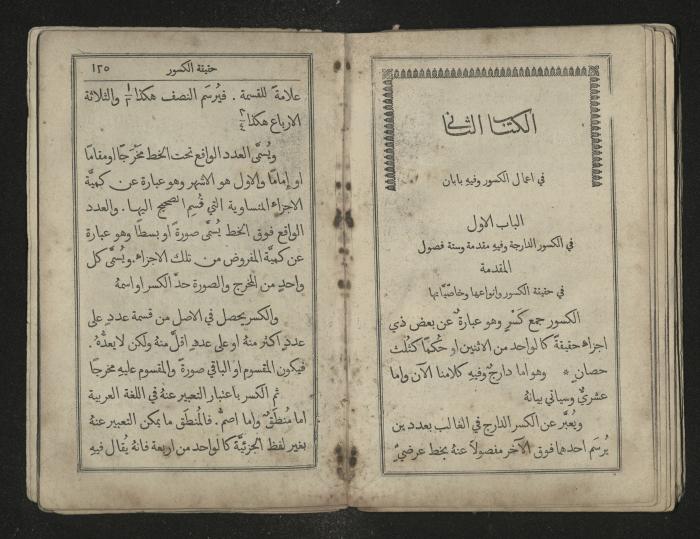 الكتاب الثاني
في اعمال الكسور وفيهِ بابان
الباب الاول
في الكسور الدارجة وفيهِ مقدمة وستة فصول
المقدمة
في حقيقة الكسور وانواعها وخاصّيَّاتها
الكسور جمع كَسْرٍ وهو عبارةٌ عن بعض ذي
اجزاءٍ حقيقةً كالواحد من الاثنين او حُكمًا كثلث
حصانٍ * وهو اما دارجٌ وفيهِ كلامنا الآن واما
عشريٌّ وسياتي بيانهُ
ويُعبَّر عن الكسر الدارج في الغالب بعددين
يُرسَم احدهما فوق الآخر مفصولاً عنهُ بخط عرضيٍّ
حقيقة الكسور
١٢٥
علامةً للقسمة . فيُرسَم النصف هكذا ١/٢ والثلاثة
الارباع هكذا ٣/٤
ويُسمَّى العدد الواقع تحت الخط مَخْرَجًا او مقامًا
او إمامًا والاول هو الاشهر وهو عبارة عن كميَّة
الاجزاءِ المتساوية التي قُسِم الصحيح اليها . والعدد
الواقع فوق الخط يُسمَّى صورةً او بسطًا وهو عبارة
عن كميَّة المفروض من تلك الاجزاءِ . ويُسمَّى كل
واحدٍ من المخرج والصورة حدَّ الكسر او اسمهُ
والكسر يحصل في الاصل من قسمة عددٍ على
عددٍ اكثر منهُ او على عددٍ اقلَّ منهُ ولكن لا يعدُّهُ .
فيكون المقسوم او الباقي صورةً والمقسوم عليهِ مخرجًا
ثم الكسر باعتبار التعبير عنهُ في اللغة العربية
اما مُنطَقٌ واما اصمُّ . فالمُنطَق ما يمكن التعبير عنهُ
بغير لفظ الجزئيَّة كالواحد من اربعة فانهُ يُقال فيهِ